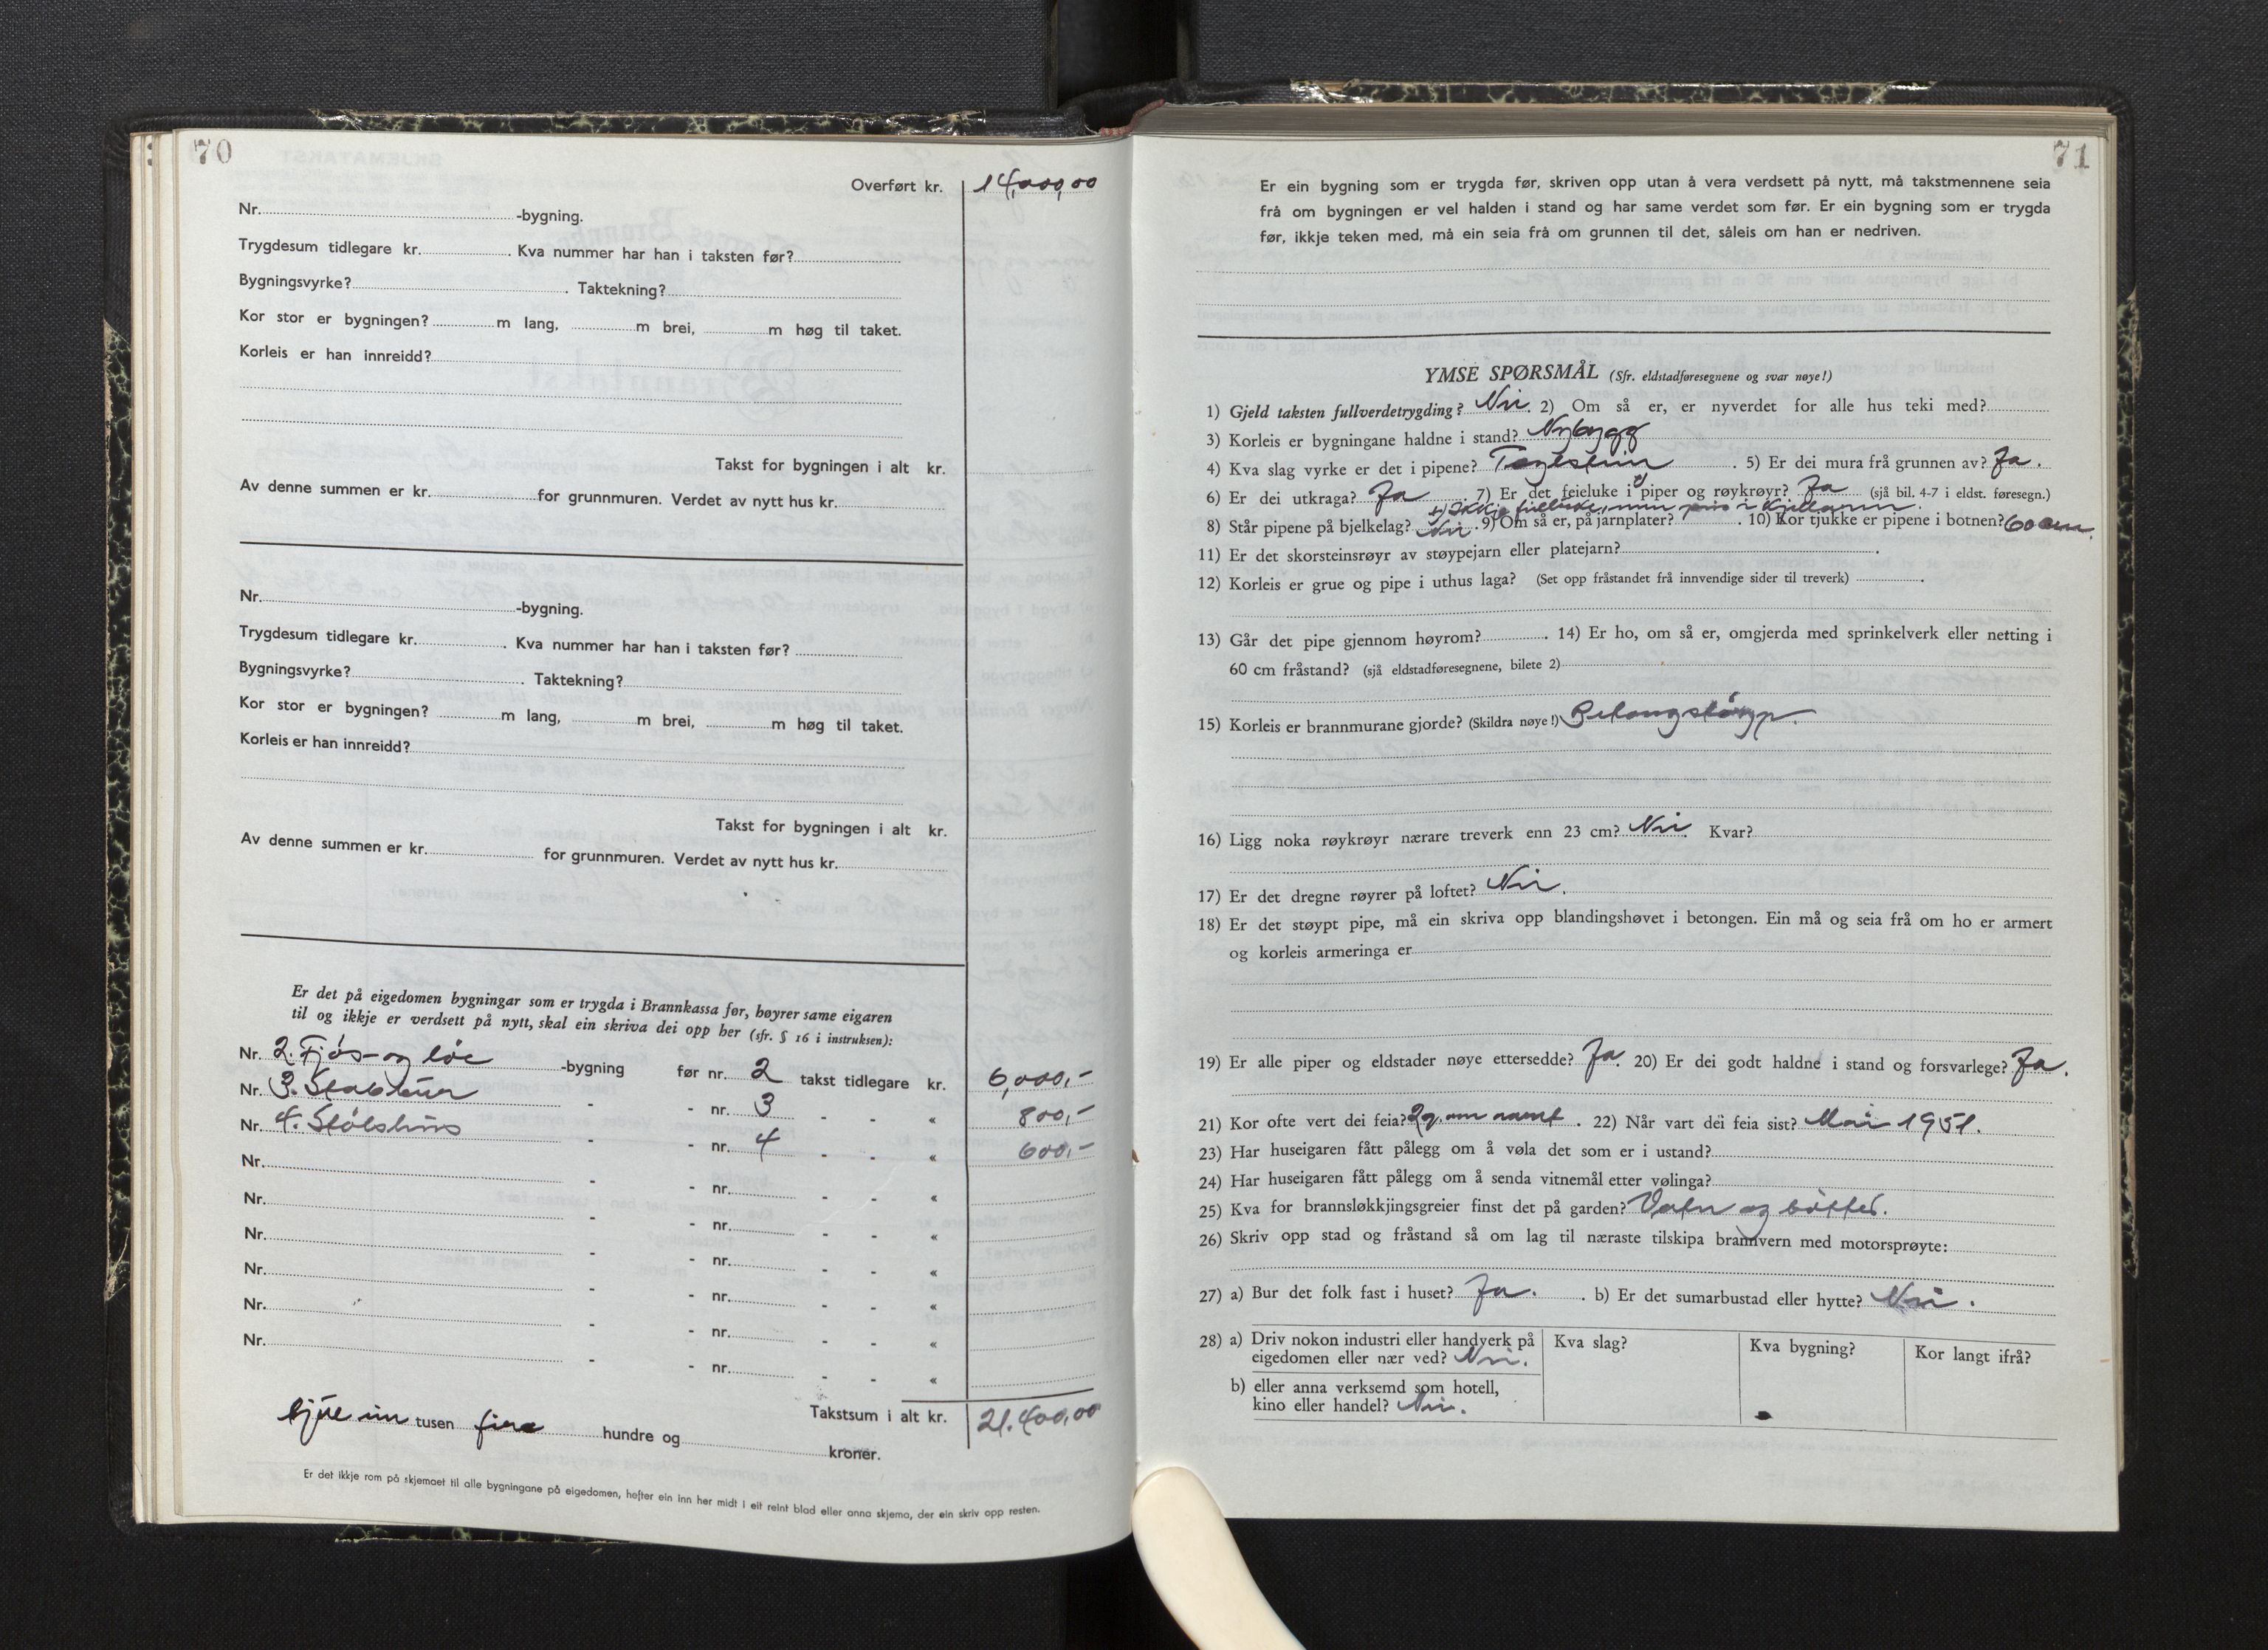 70
Overført kr. 14,000,00
Nr. -bygning.
Trygdesum tidlegare kr. . Kva nummer har han i taksten før?
Bygningsvyrke? . Taktekning?
Kor stor er bygningen? m lang, m brei, m høg til taket.
Korleis er han innreidd?
Takst for bygningen i alt kr.
Av denne summen er kr. for grunnmuren. Verdet av nytt hus kr.
Nr. -bygning.
Trygdesum tidlegare kr. . Kva nummer har han i taksten før?
Bygningsvyrke? . Taktekning?
Kor stor er bygningen? m lang, m brei, m høg til taket.
Korleis er han innreidd?
Takst for bygningen i alt kr.
Av denne summen er kr. for grunnmuren. Verdet av nytt hus kr.
Er det på eigedomen bygningar som er trygda i Brannkassa før, høyrer same eigaren
til og ikkje er verdsett på nytt, skal ein skriva dei opp her (sfr. § 16 i instruksen):
Nr. 2. Fjøs- og løe -bygning før nr. 2 takst tidlegare kr. 6,000,-
Nr. 3. Stabbur - - nr. 3 - - « 800,-
Nr. 4. Stølshus - - nr. 4 - - « 600,-
Nr. - - nr. - - «
Nr. - - nr. - - «
Nr. - - nr. - - «
Nr. - - nr. - - «
Nr. - - nr. - - «
Nr. - - nr. - - «
Takstsum i alt kr. 21.400,00
tjue ein tusen fire hundre og kroner.
Er det ikkje rom på skjemaet til alle bygningane på eigedomen, hefter ein inn her midt i eit reint blad eller anna skjema, der ein skriv opp resten.
71
Er ein bygning som er trygda før, skriven opp utan å vera verdsett på nytt, må takstmennene seia
frå om bygningen er vel halden i stand og har same verdet som før. Er ein bygning som er trygda
før, ikkje teken med, må ein seia frå om grunnen til det, såleis om han er nedriven.
YMSE SPØRSMÅL (Sfr. eldstadføresegnene og svar nøye!)
1) Gjeld taksten fullverdetrygding? Nei. 2) Om så er, er nyverdet for alle hus teki med?
3) Korleis er bygningane haldne i stand? Nybygg
4) Kva slag vyrke er det i pipene? Teglstein . 5) Er dei mura frå grunnen av? Ja.
6) Er dei utkraga? Ja . 7) Er det feieluke i piper og røykrøyr? Ja (sjå bil. 4-7 i eldst. føresegn.)
Ikkje feieluke, men i kjellaren.
8) Står pipene på bjelkelag? Nei . 9) Om så er, på jarnplater? . 10) Kor tjukke er pipene i botnen? 60 cm.
11) Er det skorsteinsrøyr av støypejarn eller platejarn? .
12) Korleis er grue og pipe i uthus laga? (Set opp fråstandet frå innvendige sider til treverk) .
13) Går det pipe gjennom høyrom? . 14) Er ho, om så er, omgjerda med sprinkelverk eller netting i
60 cm fråstand? (sjå eldstadføresegnene, bilete 2)
15) Korleis er brannmurane gjorde? (Skildra nøye!) Betongstøyp.
16) Ligg noka røykrøyr nærare treverk enn 23 cm? Nei. Kvar?
17) Er det dregne røyrer på loftet? Nei.
18) Er det støypt pipe, må ein skriva opp blandingshøvet i betongen. Ein må og seia frå om ho er armert
og korleis armeringa er
19) Er alle piper og eldstader nøye ettersedde? Ja. 20) Er dei godt haldne i stand og forsvarlege? Ja.
21) Kor ofte vert dei feia? 2 g. om aaret . 22) Når vart dei feia sist? Mai 1951.
23) Har huseigaren fått pålegg om å vøla det som er i ustand?
24) Har huseigaren fått pålegg om å senda vitnemål etter vølinga?
25) Kva for brannsløkkjingsgreier finst det på garden? Vatn og bøtter.
26) Skriv opp stad og fråstand så om lag til næraste tilskipa brannvern med motorsprøyte:
27) a) Bur det folk fast i huset? Ja. . b) Er det sumarbustad eller hytte? Nei.
28) a) Driv nokon industri eller handverk på
eigedomen eller nær ved? Nei.
Kva slag?
Kva bygning?
Kor langt ifrå?
b) eller anna verksemd som hotell,
kino eller handel? Nei.